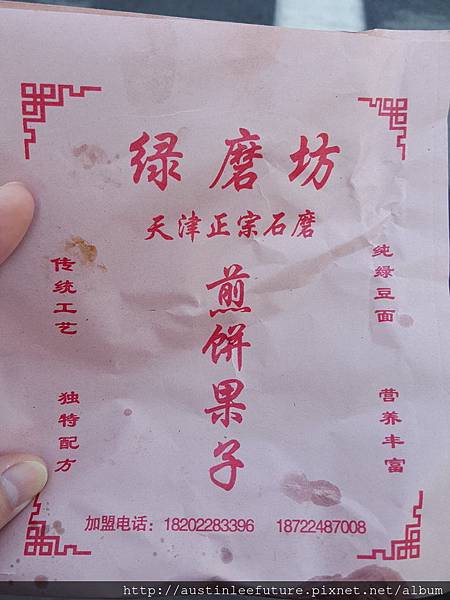 绿磨坊
天津正宗石磨
煎饼果子
传统工艺
独特配方
纯绿豆面
营养丰富
加盟电话：18202283396 18722487008
http://austinleefuture.pixnet.net/album